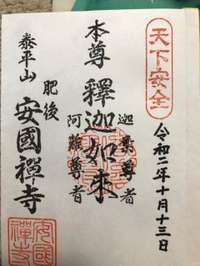 天下安全
令和二年十月十三日
迦葉尊者
本尊 釋迦如来
阿難尊者
肥後
泰平山 安國禅寺